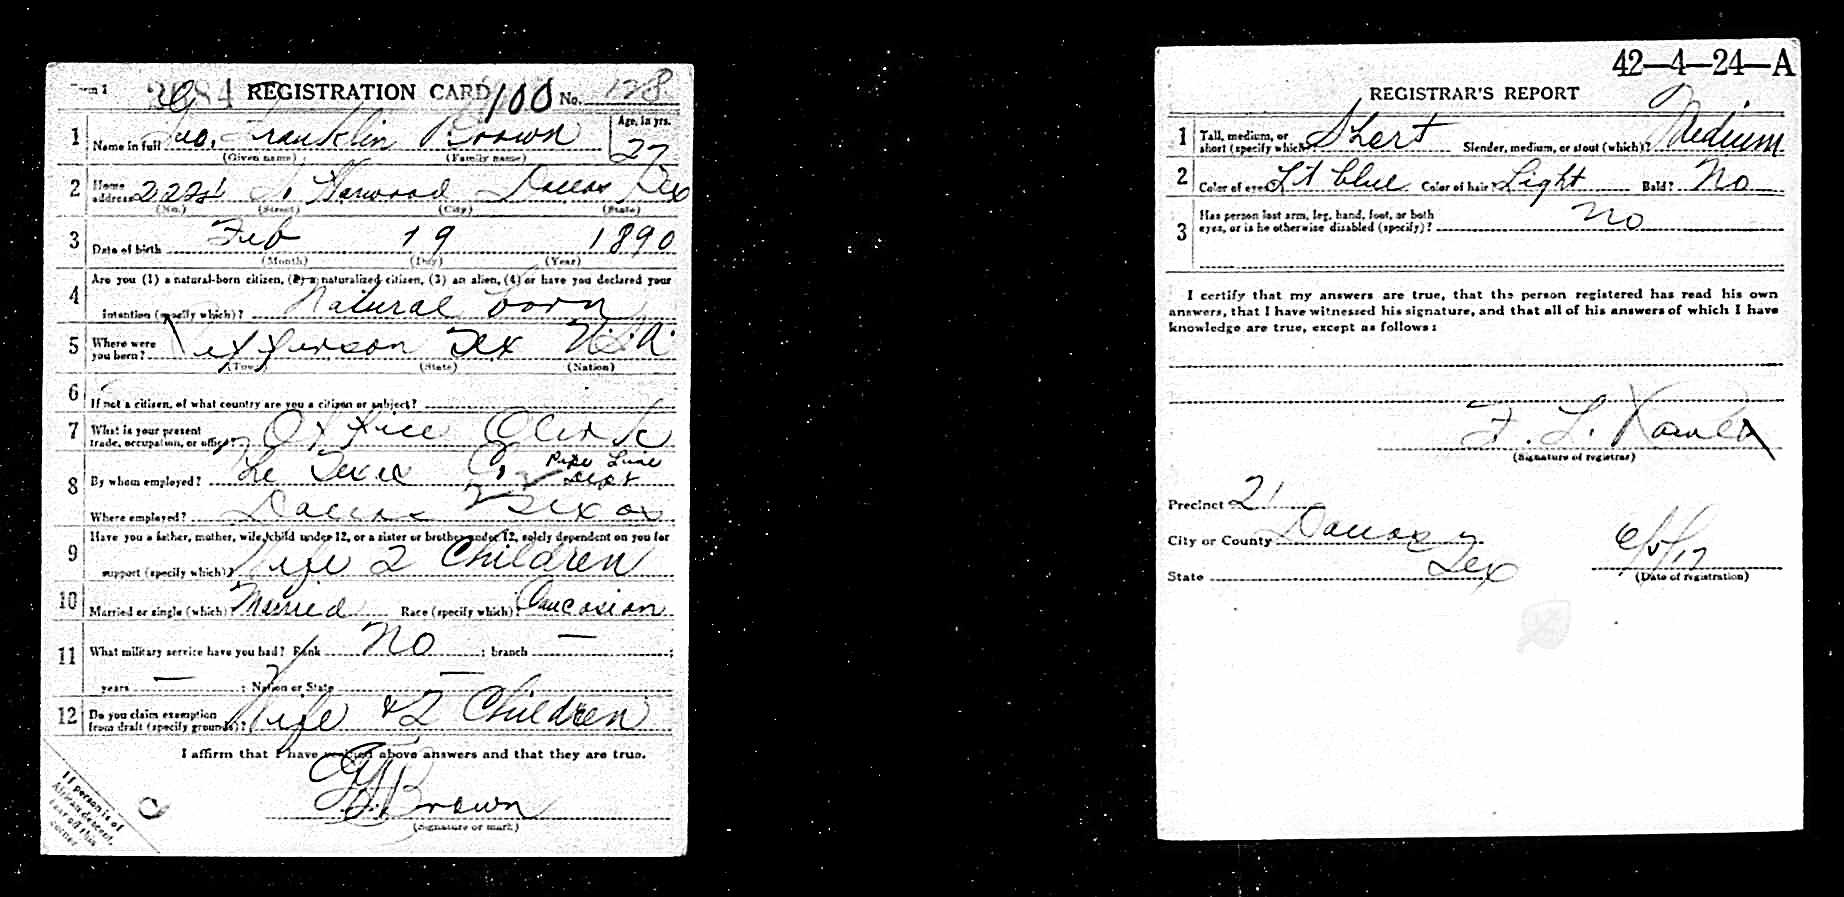 Form 1 REGISTRATION CARD 100 No. 128
1 Name in full Geo. Franklin Brown Age, in yrs. 27
(Given name) (Family name)
2 Home address S. Harwood Dallas Tex
(No.) (Street) (City) (State)
3 Date of birth Feb 19 1890
(Month) (Day) (Year)
4 Are you (1) a natural-born citizen, (2) a naturalized citizen, (3) an alien, (4) or have you declared your
intention (specify which)? Natural born
5 Where were you born? Jefferson Tex
(Town) (State) (Nation)
6 If not a citizen, of what country are you a citizen or subject?
7 What is your present trade, occupation, or office? Office Clerk
8 By whom employed? The Texas Co. Pipe Line Dept
Where employed? Dallas Texas
9 Have you a father, mother, wife, child under 12, or a sister or brother under 12, solely dependent on you for
support (specify which)? Wife 2 Children
10 Married or single (which) Married Race (specify which)? Caucasian
11 What military service have you had? Rank No ; branch — ;
years — ; Nation or State —
12 Do you claim exemption from draft (specify grounds)? Wife & 2 Children
I affirm that I have verified above answers and that they are true.
Brown
(Signature or mark)
If person is of
African descent,
tear off this
corner
42—4—24—A
REGISTRAR'S REPORT
1 Tall, medium, or short (specify which)? Short Slender, medium, or stout (which)? Medium
2 Color of eyes Lt blue Color of hair? Light Bald? No
3 Has person lost arm, leg, hand, foot, or both
eyes, or is he otherwise disabled (specify)? No
I certify that my answers are true, that the person registered has read his own
answers, that I have witnessed his signature, and that all of his answers of which I have
knowledge are true, except as follows:
F. L.
(Signature of registrar)
Precinct 21
City or County Dallas
State Tex 6/5/17
(Date of registration)